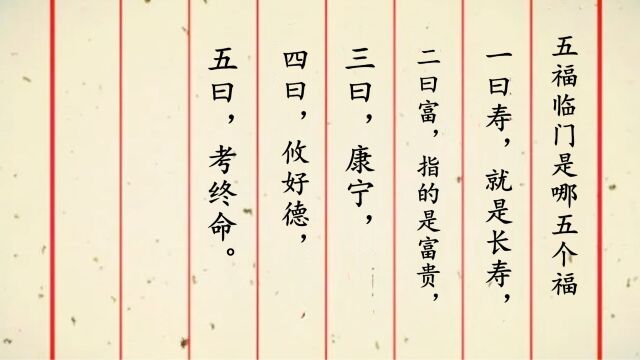 五福临门是哪五个福
一曰寿，就是长寿，
二曰富，指的是富贵，
三曰，康宁，
四曰，攸好德，
五曰，考终命。